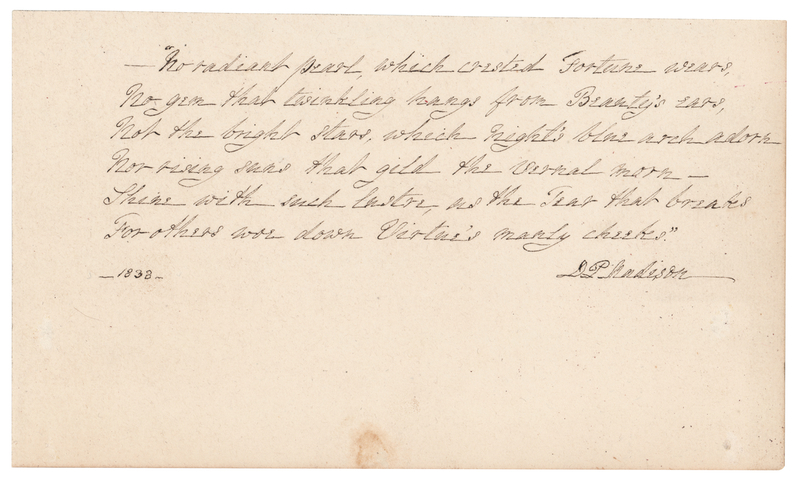 — "No radiant pearl, which crested Fortune wears,
No gem that twinkling hangs from Beauty's ears,
Not the bright stars, which Night's blue arch adorn
Nor rising suns that gild the vernal morn —
Shine with such lustre, as the Tear that breaks
For others woe down Virtue's manly cheeks."
— 1838 —
D P Madison